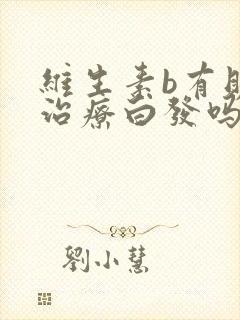 維生素b有助
治療白發嗎
劉小慧